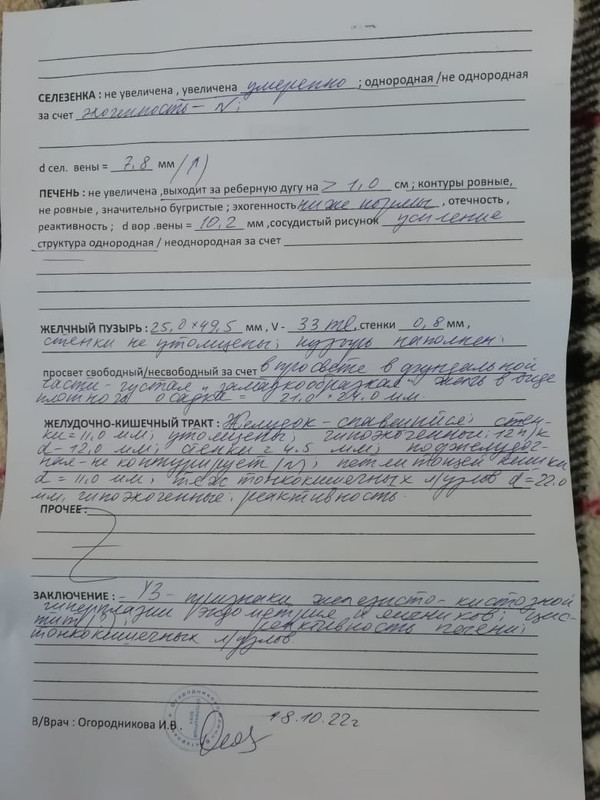 СЕЛЕЗЕНКА : не увеличена , увеличена умеренно ; однородная /не однородная
за счет эхогенность – N;
d сел. вены = 7,8 мм (↑)
ПЕЧЕНЬ : не увеличена ,выходит за реберную дугу на > 1,0 см ; контуры ровные,
не ровные , значительно бугристые ; эхогенность ниже нормы , отечность ,
реактивность ; d вор .вены = 10,2 мм ,сосудистый рисунок усиление
структура однородная / неоднородная за счет
ЖЕЛЧНЫЙ ПУЗЫРЬ : 25,0*49,5 мм , V - 33 ml, стенки 0,8 мм ,
стенки не утолщены; пузырь наполнен.
просвет свободный/несвободный за счет в просвете в фундальной
части - густая "замазкообразная" желчь в виде
плотного осадка = 21.0 * 24.0 мм.
ЖЕЛУДОЧНО-КИШЕЧНЫЙ ТРАКТ : Желудок - спавшийся; стен-
ки = 11,0 мм; утолщены; гипоэхогенные; 12 п/к
d - 12,0 мм; стенки = 4.5 мм; поджелудоч-
ная - не контурирует (N); петли тощей кишки
d = 11,0 мм; тонкокишечных л/узлов d = 22.0
мм, гипоэхогенные; реактивность.
ПРОЧЕЕ :
ЗАКЛЮЧЕНИЕ : - УЗ - признаки железисто - кистозной
гиперплазии эндометрия и яичников; цис-
тит (?); реактивность печени;
тонкокишечных л/узлов
В/Врач : Огородникова И.В.
18.10.22г